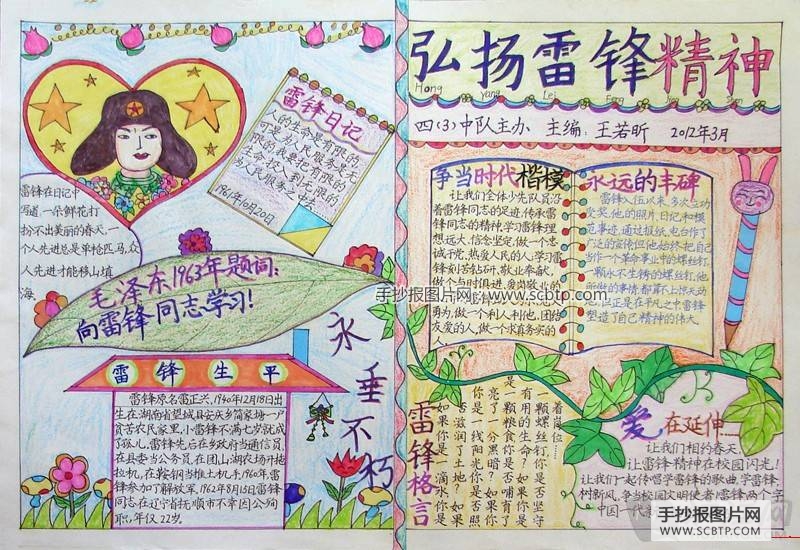 弘扬雷锋精神
Hong yang Lei Feng Jing Shen
四(3)中队主办 主编:王若昕 2012年3月
雷锋在日记中
写道:一朵鲜花打
扮不出美丽的春天,一
个人先进总是单枪匹马,众
人先进才能移山填
海。
雷锋日记
人的生命是有限的,
可是,为人民服务是无
限的,我要把有限的
生命,投入到无限的
为人民服务之中去。
1961年10月20日
毛泽东1963年题词:
向雷锋同志学习!
雷锋生平
雷锋原名雷正兴,1940年12月18日出
生在湖南省望城县安庆乡简家塘一户
贫苦农民家里,小雷锋不满七岁就成
了孤儿。雷锋先后在乡政府当通信员,
在县委当公务员,在团山湖农场开拖
拉机,在鞍钢当推土机手,1960年,雷
锋参加了解放军,1962年8月15日雷锋
同志在辽宁省抚顺市不幸因公殉
职,年仅22岁。
永垂不朽
争当时代楷模
让我们全体少先队员沿
着雷锋同志的足迹,传承雷
锋同志的精神,学习雷锋理
想远大,信念坚定,做一个忠
诚于党,热爱人民的人,学习雷
锋刻苦钻研,敬业奉献,
做个与时俱进,爱岗敬业的
勇为,做一个利人利他,团结
友爱的人,做一个求真务实的
人。
永远的丰碑
雷锋入伍以来,多次立功
受奖,他的照片、日记和模
范事迹,通过报纸、电台作了
广泛的宣传,但他始终把自己
当作一个革命事业中的螺丝钉,
一颗永不生锈的螺丝钉,他
所做的事情,都算不上惊天动
地,但正是在平凡之中,雷锋
塑造了自己精神的伟大。
手抄报图片网:www.scbtp.com
雷锋格言
如果你是一滴水,你是
否滋润了土地?如果
你是一线阳光,你是否照
亮了一分黑暗?如果你
是一颗粮食,你是否哺育了
有用的生命?如果你是
一颗螺丝钉,你是否坚守
着岗位……
爱在延伸……
让我们相约春天,
让雷锋精神在校园闪光!
让我们一起传唱学雷锋的歌曲,学雷锋,
树新风,争当校园文明使者!雷锋两个字
中国一代
手抄报图片网
WWW.SCBTP.COM